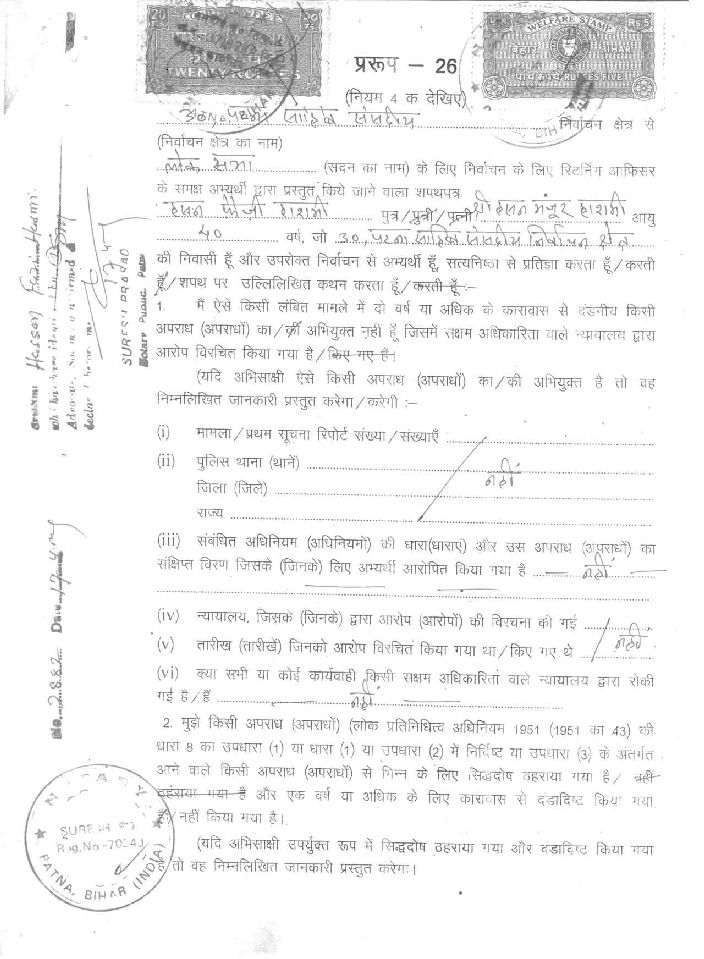 TWENTY RUPEES
WELFARE STAMP
Rs.5
बिहार BIHAR
RUPEES FIVE
प्ररूप – 26
(नियम 4 क देखिए)
30, पटना साहिब संसदीय निर्वाचन क्षेत्र से
(निर्वाचन क्षेत्र का नाम)
लोक सभा (सदन का नाम) के लिए निर्वाचन के लिए रिटर्निंग आफिसर
के समक्ष अभ्यर्थी द्वारा प्रस्तुत किये जाने वाला शपथपत्र
हसन फैजी हाशमी पुत्र/पुत्री/पत्नी श्री हसन मंजूर हाशमी आयु
40 वर्ष, जो 30, पटना साहिब संसदीय निर्वाचन क्षेत्र
की निवासी हूँ और उपरोक्त निर्वाचन से अभ्यर्थी हूँ, सत्यनिष्ठा से प्रतिज्ञा करता हूँ/करती
हूँ/शपथ पर उल्लिलिखित कथन करता हूँ/करती हूँ :–
1. मैं ऐसे किसी लंबित मामले में दो वर्ष या अधिक के कारावास से दंडनीय किसी
अपराध (अपराधों) का/की अभियुक्त नहीं हूँ जिसमें सक्षम अधिकारिता वाले न्यायालय द्वारा
आरोप विरचित किया गया है/किए गए हैं।
(यदि अभिसाक्षी ऐसे किसी अपराध (अपराधों) का/की अभियुक्त है तो वह
निम्नलिखित जानकारी प्रस्तुत करेगा/करेगी :–
(i) मामला/प्रथम सूचना रिपोर्ट संख्या/संख्याएँ :
(ii) पुलिस थाना (थानें) नहीं
जिला (जिले)
राज्य
(iii) संबंधित अधिनियम (अधिनियमों) की धारा(धाराएं) और उस अपराध (अपराधों) का
संक्षिप्त विरण जिसके (जिनके) लिए अभ्यर्थी आरोपित किया गया है नहीं
(iv) न्यायालय, जिसके (जिनके) द्वारा आरोप (आरोपों) की विरचना की गई
(v) तारीख (तारीखें) जिनको आरोप विरचित किया गया था/किए गए थे नहीं
(vi) क्या सभी या कोई कार्यवाही किसी सक्षम अधिकारिता वाले न्यायालय द्वारा रोकी
गई है/हैं नहीं
2. मुझे किसी अपराध (अपराधों) (लोक प्रतिनिधित्व अधिनियम 1951 (1951 का 43) की
धारा 8 का उपधारा (1) या धारा (1) या उपधारा (2) में निर्दिष्ट या उपधारा (3) के अंतर्गत
आने वाले किसी अपराध (अपराधों) से भिन्न के लिए सिद्धदोष ठहराया गया है/नहीं
ठहराया गया है और एक वर्ष या अधिक के लिए कारावास से दंडादिष्ट किया गया
है/नहीं किया गया है।
(यदि अभिसाक्षी उपर्युक्त रूप में सिद्धदोष ठहराया गया और दंडादिष्ट किया गया
है तो वह निम्नलिखित जानकारी प्रस्तुत करेगा।
SURESH PRASAD
Notary Public Patna
NOTARY
Reg.No.-7024
PATNA, BIHAR (INDIA)